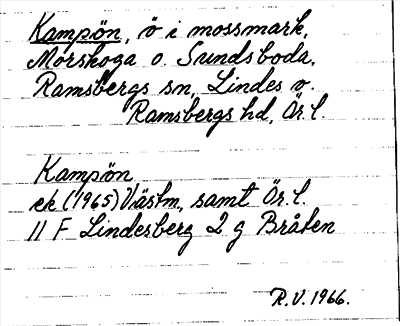 Kampön, ö i mossmark,
Morskoga o. Sundsboda,
Ramsbergs sn, Lindes o.
Ramsbergs hd, Ör. l.
Kampön
ek (1965) Västm, samt Ör. l.
11 F Lindesberg 2 g Bråten
R.V. 1966.